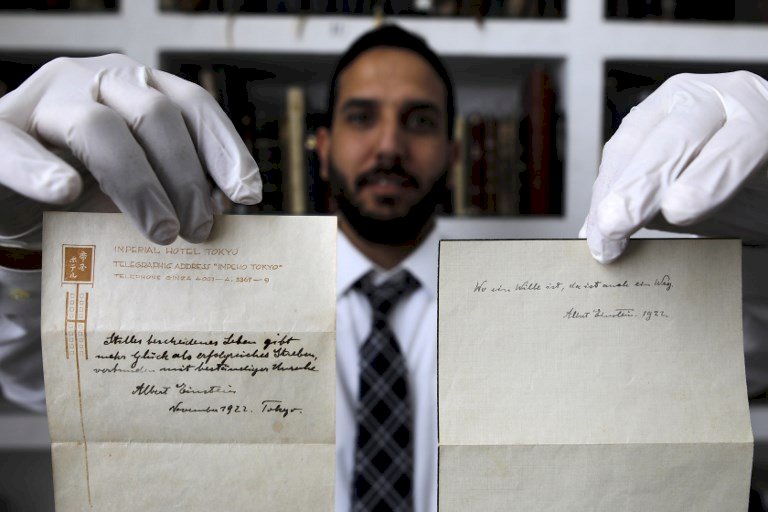 帝国ホテル
IMPERIAL HOTEL TOKYO
TELEGRAPHIC ADDRESS "IMPEHO TOKYO"
TELEPHONE GINZA
Stilles bescheidenes Leben gibt
mehr Glück als erfolgreiches Streben,
verbunden mit beständiger Unruhe.
Albert Einstein
November 1922. Tokyo.
Wo ein Wille ist, da ist auch ein Weg.
Albert Einstein. 1922.